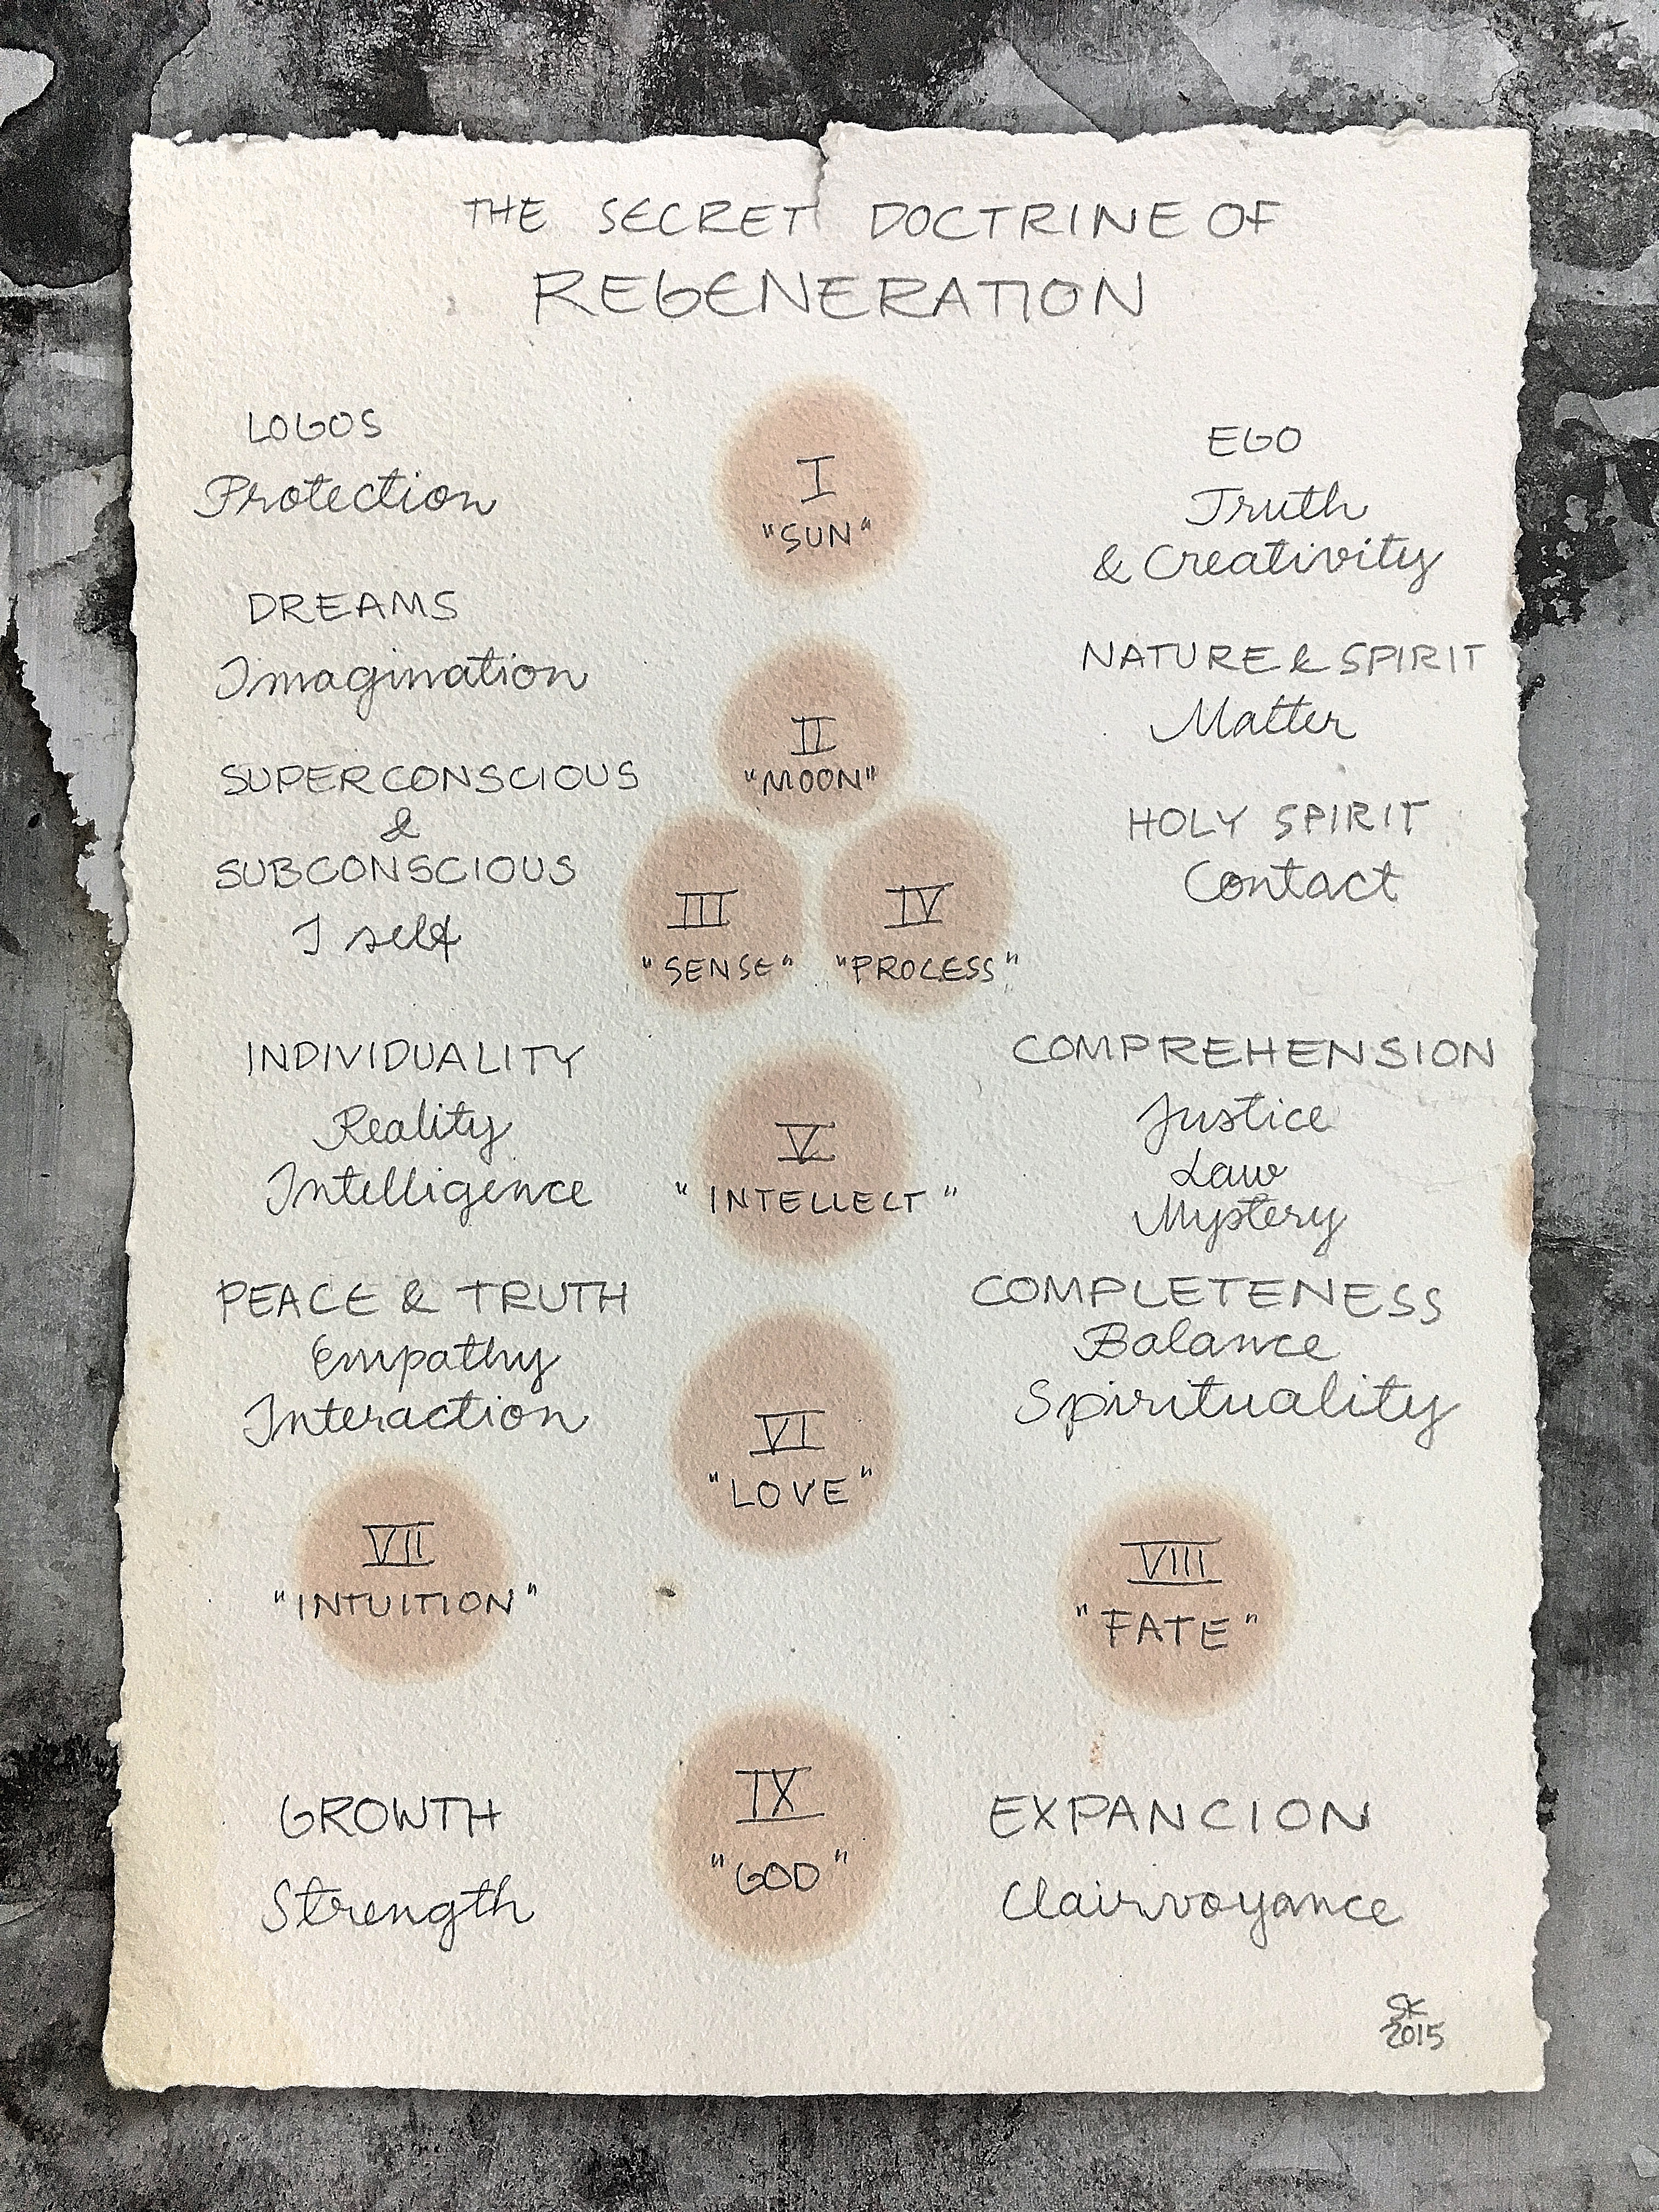 THE SECRET DOCTRINE OF
REGENERATION
LOGOS
Protection
I
"SUN"
EGO
Truth
& Creativity
DREAMS
Imagination
II
"MOON"
NATURE & SPIRIT
Matter
SUPERCONSCIOUS
&
SUBCONSCIOUS
I self
III
"SENSE"
IV
"PROCESS"
HOLY SPIRIT
Contact
INDIVIDUALITY
Reality
Intelligence
V
"INTELLECT"
COMPREHENSION
Justice
Law
Mystery
PEACE & TRUTH
Empathy
Interaction
VI
"LOVE"
COMPLETENESS
Balance
Spirituality
VII
"INTUITION"
VIII
"FATE"
GROWTH
Strength
IX
"GOD"
EXPANCION
Clairvoyance
SK
2015